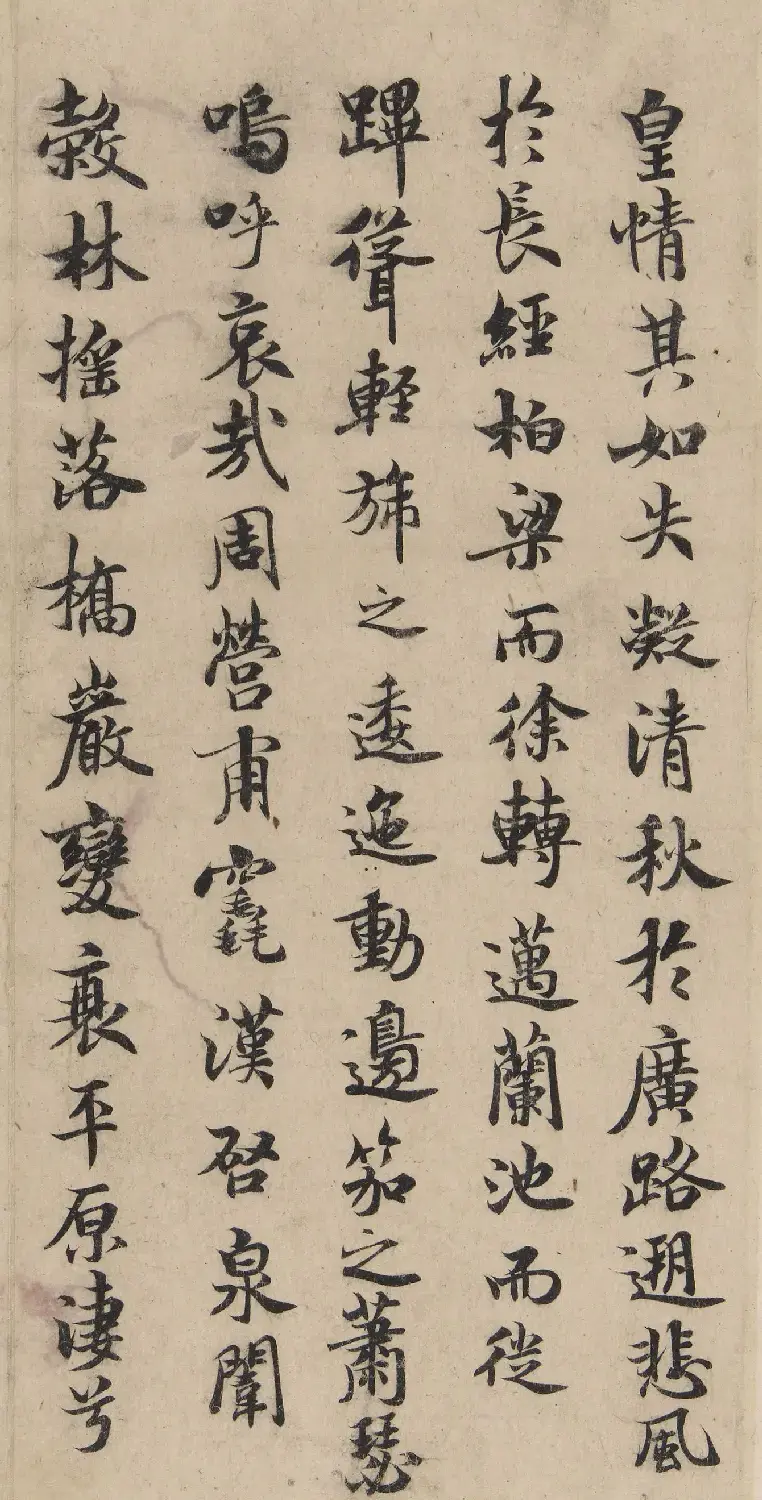 皇情其如失凝清秋於廣路遡悲風
於長經柏梁而徐轉邁蘭池而從
蹕聳輕旆之逶迤動邊笳之蕭瑟
嗚呼哀哉周營甫竁漢啓泉闈
榖林摇落橋巖變衰平原淒兮